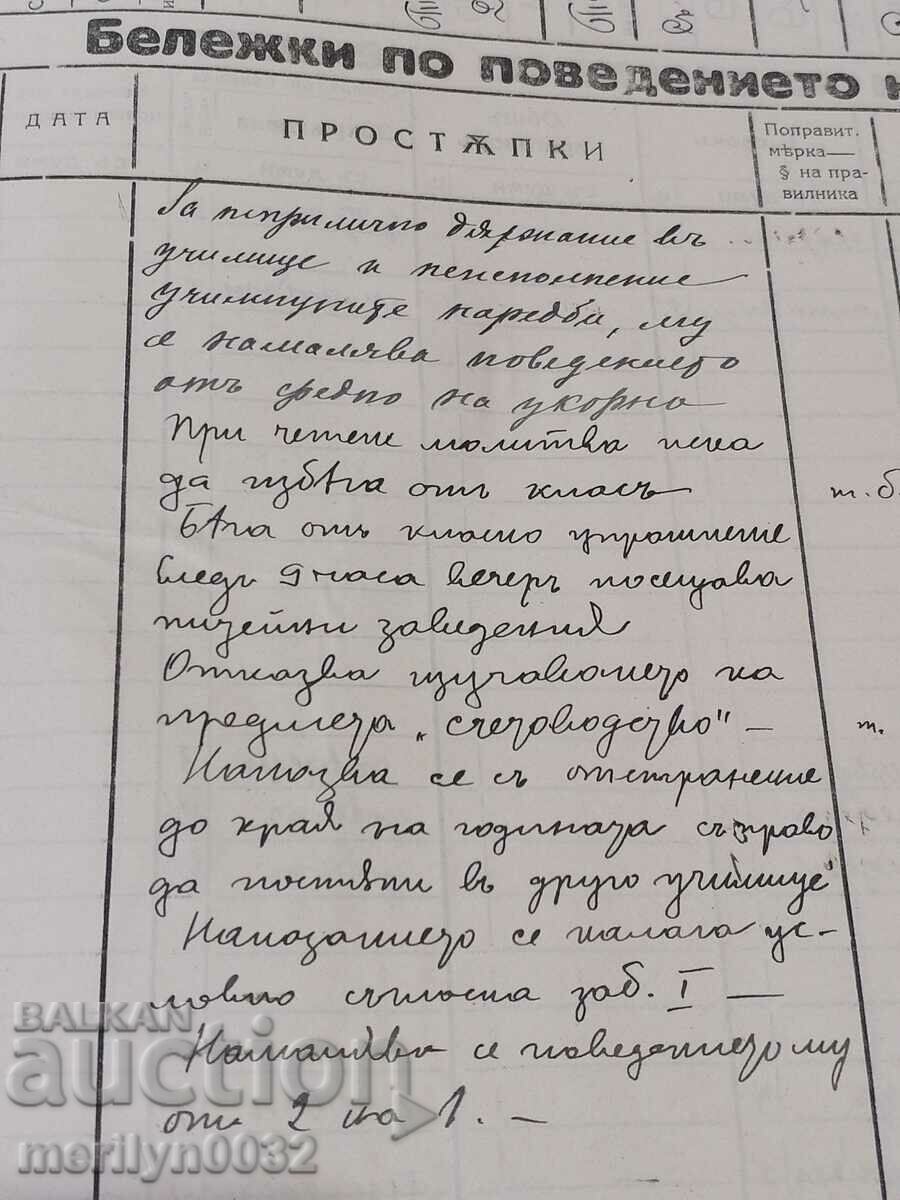 Бележки по поведението н
ДАТА
ПРОСТѪПКИ
Поправит.
мѣрка—
§ на пра-
вилника
За неприлично държание въ
училище и неисполнение
наредби, му
се намалява поведението
отъ средно на укорно
При четене молитва иска
да избѣга отъ класъ
т. б.
Бѣга отъ класно упражнение
Следъ 9 часа вечеръ посещава
питейни заведения
Отказва изучаването на
предмета „счетоводство" —
т.
Наказва се съ отстранение
до края на годината съ право
да постѫпи въ друго училище
Наказанието се налага ус-
ловно съгласно заб. I —
Намалява се поведението му
отъ 2 на 1. —
BALKAN
auction
merilyn0032